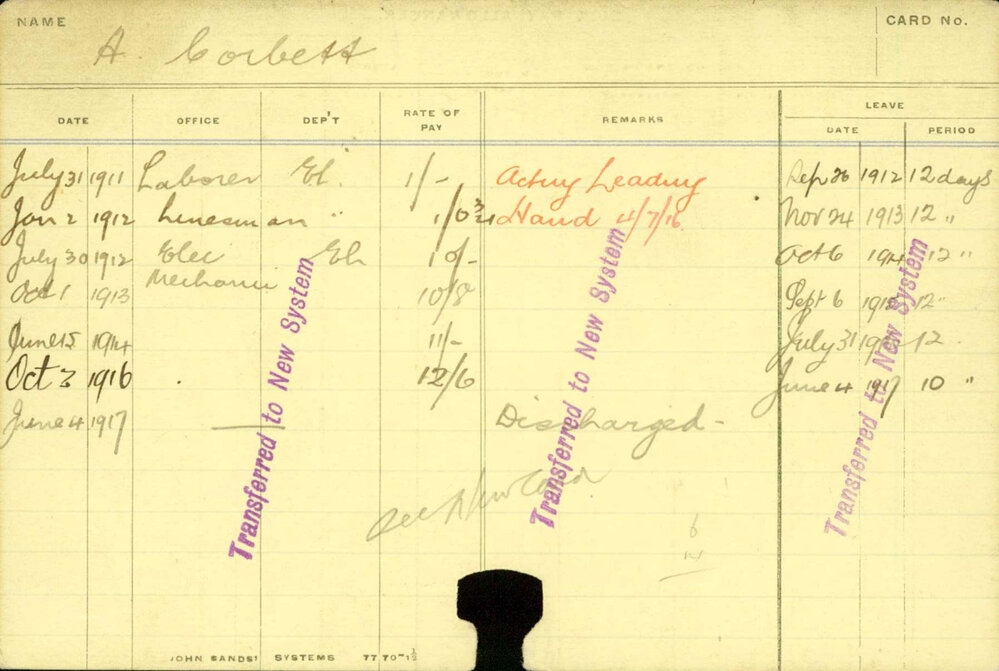 NAME
CARD No.
A. Corbett
DATE OFFICE DEP'T RATE OF PAY REMARKS LEAVE
DATE PERIOD
July 31 1911 Laborer El. 1/- Acting Leading Sep 26 1912 12 days
Jan 2 1912 Linesman " Hand 4/7/16 Nov 24 1913 12 "
July 30 1912 Elec El 10/- Oct 6 1914 12 "
Mechanic
Oct 1 1913 10/8 Sept 6 1915 12 "
June 15 1914 11/- July 31 12
Oct 3 1916 12/6 June 4 1917 10 "
June 4 1917 Discharged -
See New Card
Transferred to New System
Transferred to New System
Transferred to New System
JOHN SANDS' SYSTEMS